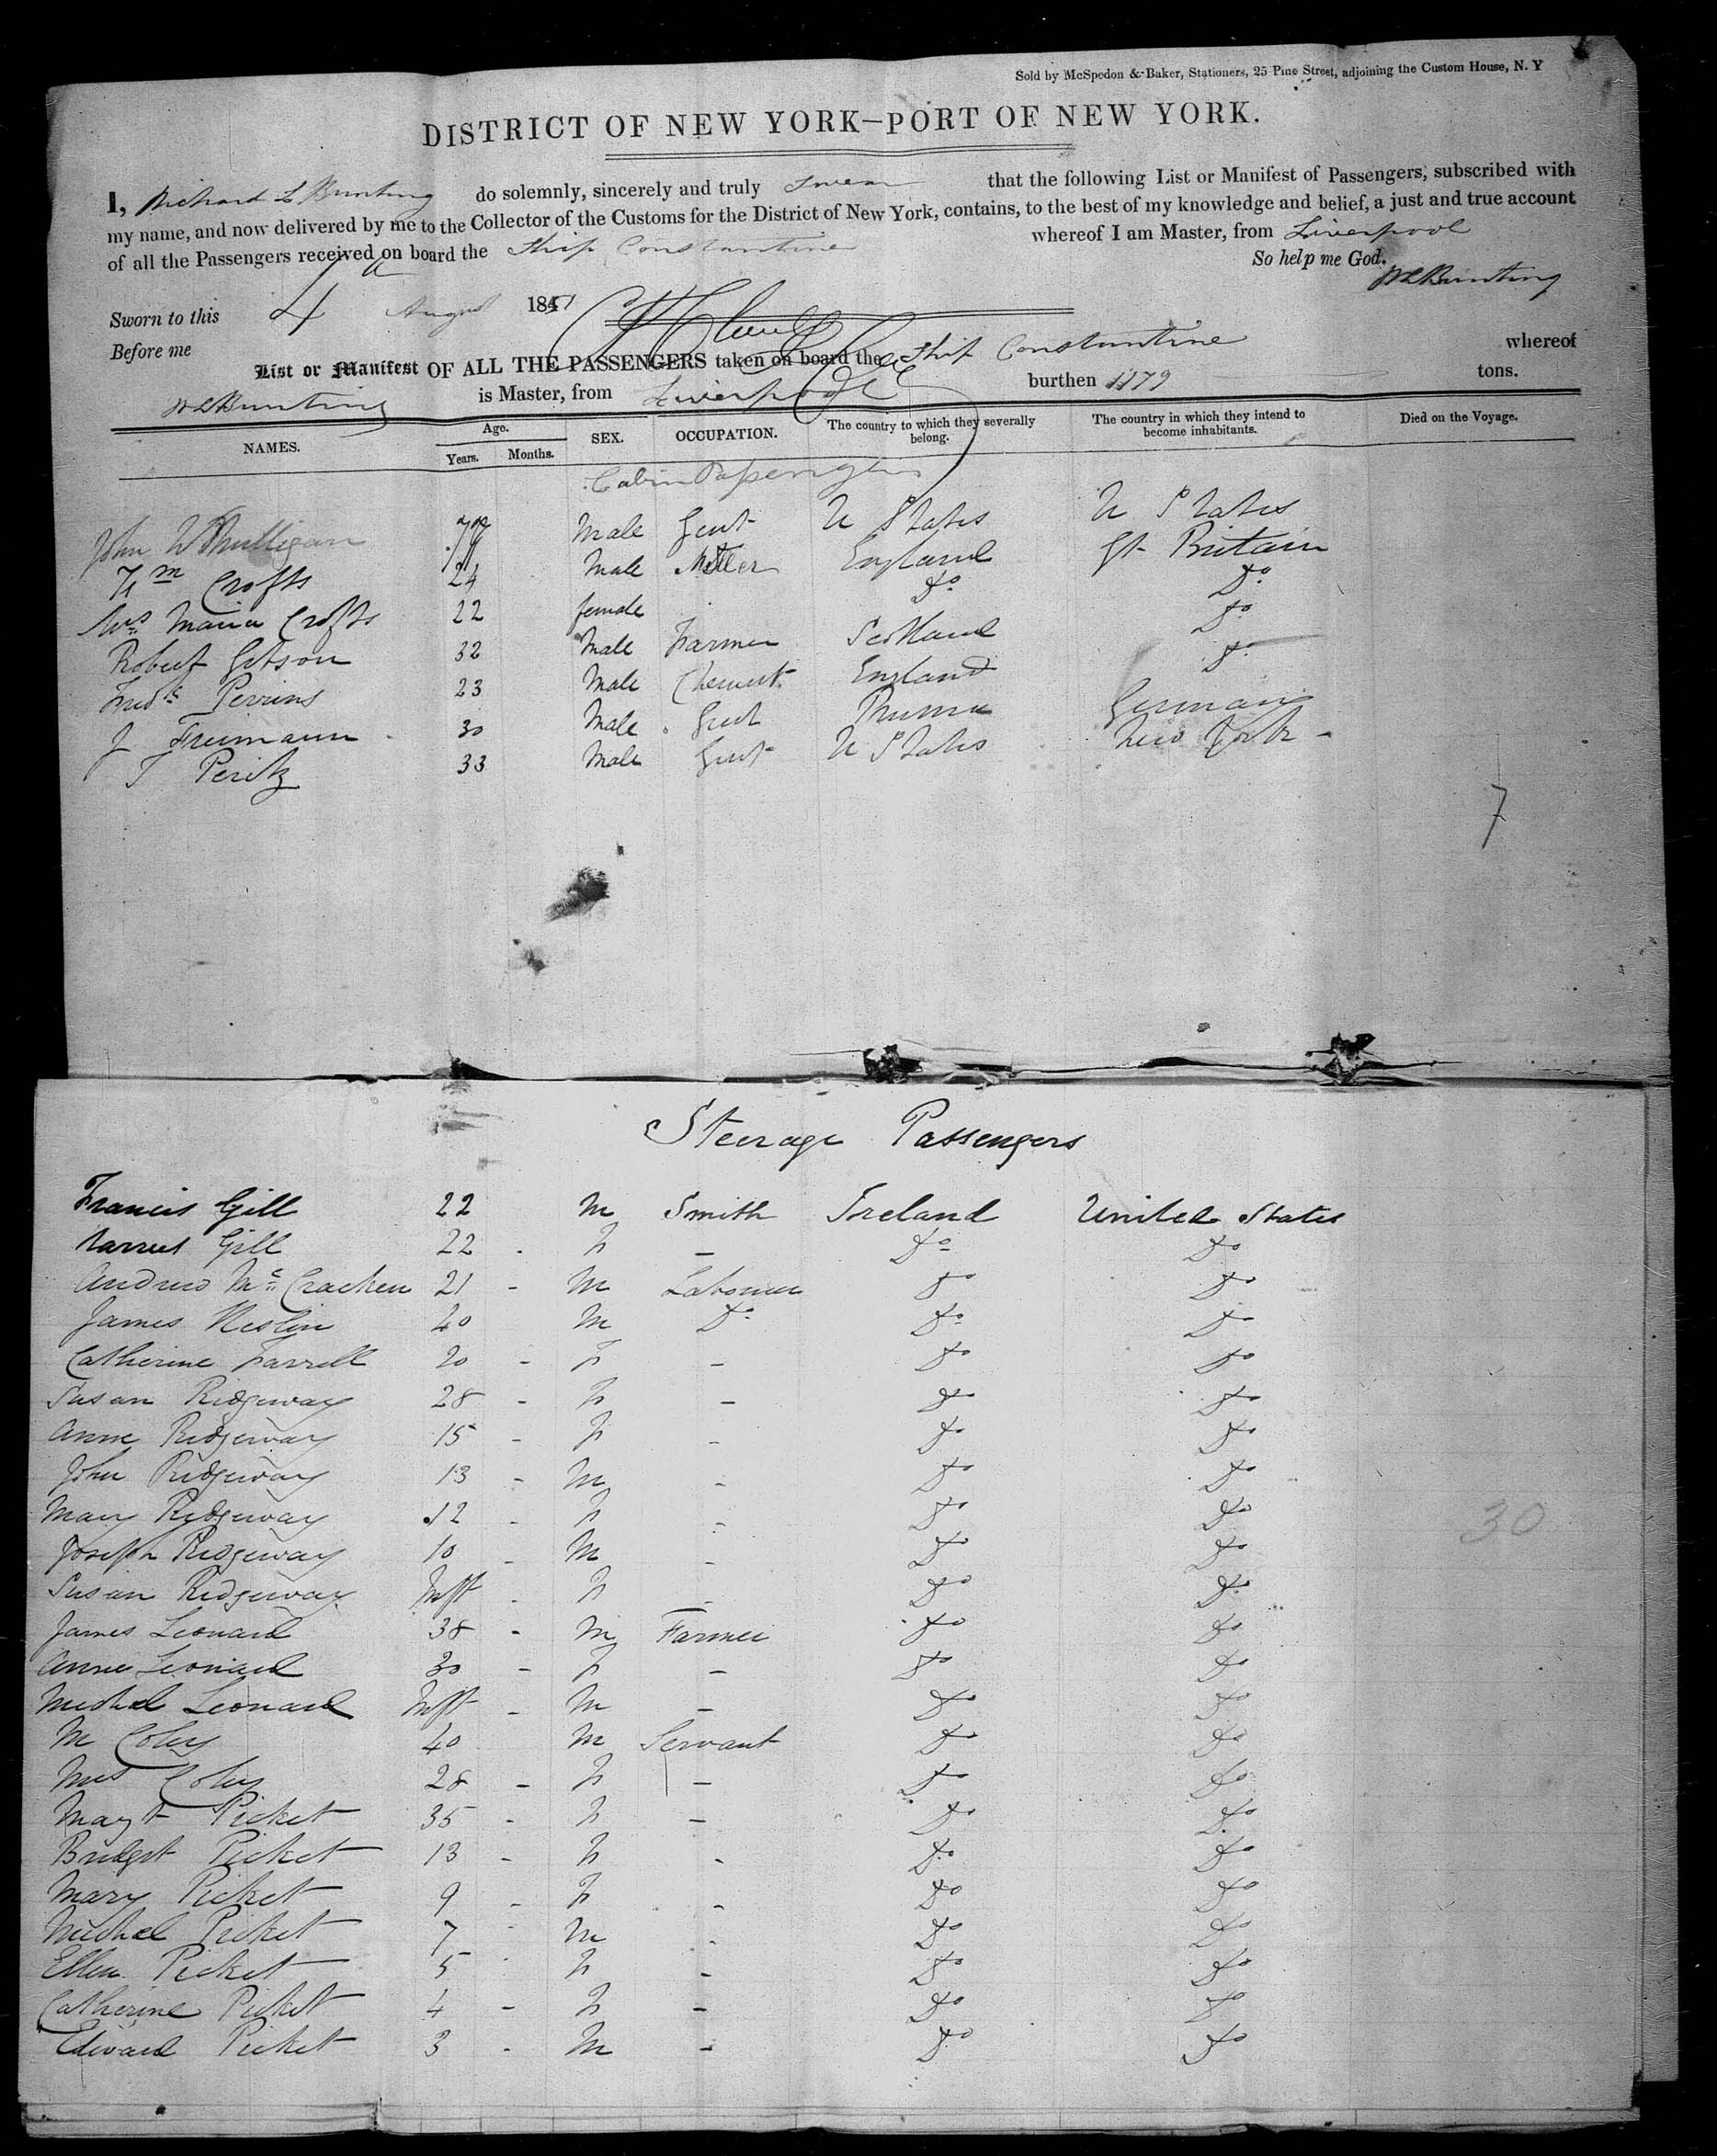 Sold by McSpedon & Baker, Stationers, 25 Pine Street, adjoining the Custom House, N. Y
DISTRICT OF NEW YORK—PORT OF NEW YORK.
I, Richard L Bunting do solemnly, sincerely and truly swear that the following List or Manifest of Passengers, subscribed with
my name, and now delivered by me to the Collector of the Customs for the District of New York, contains, to the best of my knowledge and belief, a just and true account
of all the Passengers received on board the Ship Constantine whereof I am Master, from Liverpool
So help me God.
R L Bunting
Sworn to this 4th August 1851
Before me
List or Manifest OF ALL THE PASSENGERS taken on board the Ship Constantine whereof
R L Bunting is Master, from Liverpool burthen 1179 tons.
NAMES. Age. Years. Months. SEX. OCCUPATION. The country to which they severally belong. The country in which they intend to become inhabitants. Died on the Voyage.
Cabin Passengers
John W Mulligan Male Gent U States U States
Wm Crofts 24 Male England Gt Britain
Mrs Maria Crofts 22 female Do Do
Robert Gibson 32 Male Farmer Scotland Do
Fredk Perrins 23 Male Chemist England Do
J Freimann 30 Male Gent Prussia Germany
J Peritz 33 Male Gent U States New York
7
Steerage Passengers
Francis Gill 22 M Smith Ireland United States
Harriet Gill 22 - F - Do Do
Andrew Mc Cracken 21 - M Labourer Do Do
James Heslin 40 M Do Do Do
Catherine Farrell 20 - F - Do Do
Susan Ridgeway 28 - F - Do Do
Anne Ridgeway 15 - F - Do Do
John Ridgeway 13 - M - Do Do
Mary Ridgeway 12 - F - Do Do
30
Joseph Ridgeway 10 - M - Do Do
Susan Ridgeway Inft - F - Do Do
James Leonard 38 - M Farmer Do Do
Anne Leonard 30 - F - Do Do
Michal Leonard Inft - M - Do Do
M Coley 40 M Servant Do Do
Mrs Coley 28 - F - Do Do
Magt Picket 35 - F - Do Do
Bridget Picket 13 - F - Do Do
Mary Picket 9 - F - Do Do
Michael Picket 7 - M - Do Do
Ellen Picket 5 - F - Do Do
Catherine Picket 4 - F - Do Do
Edward Picket 3 - M - Do Do